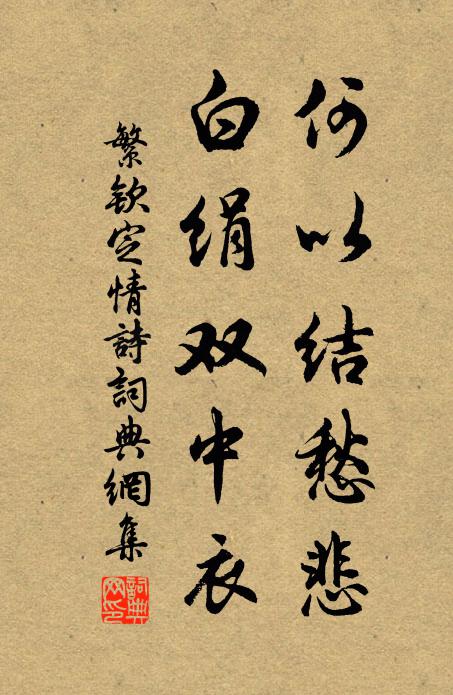 何以结愁悲
白绢双中衣
繁欽定情詩詞典網集
詞典网印